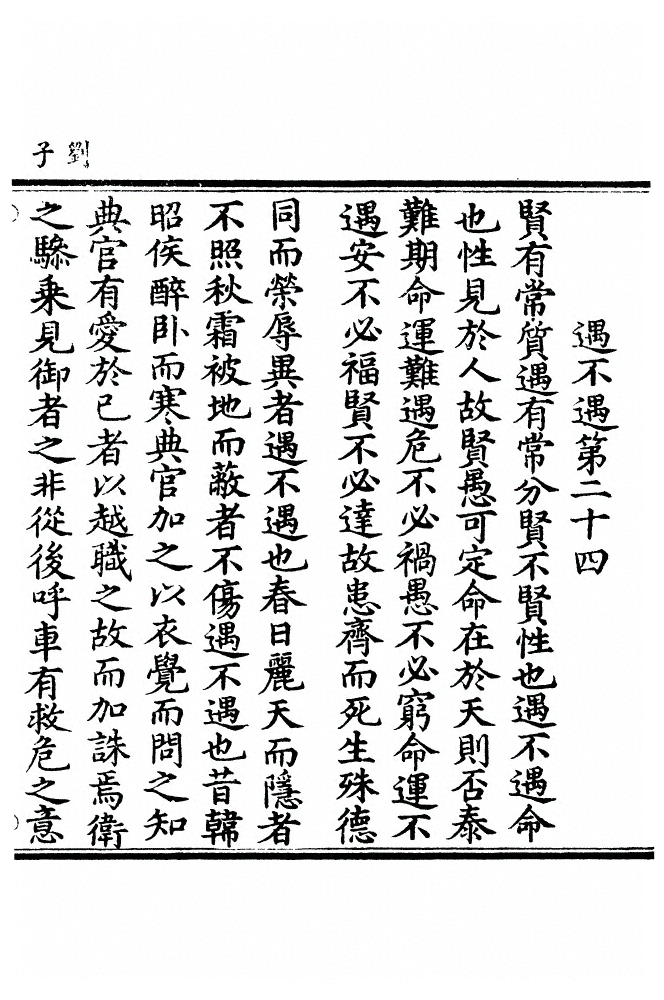 劉子
遇不遇第二十四
賢有常質遇有常分賢不賢性也遇不遇命
也性見於人故賢愚可定命在於天則否泰
難期命運難遇危不必禍愚不必窮命運不
遇安不必福賢不必達故患齊而死生殊德
同而榮辱異者遇不遇也春日麗天而隱者
不照秋霜被地而蔽者不傷遇不遇也昔韓
昭侯醉卧而寒典官加之以衣覺而問之知
典官有愛於己者以越職之故而加誅焉衛
之驂乗見御者之非從後呼車有救危之意